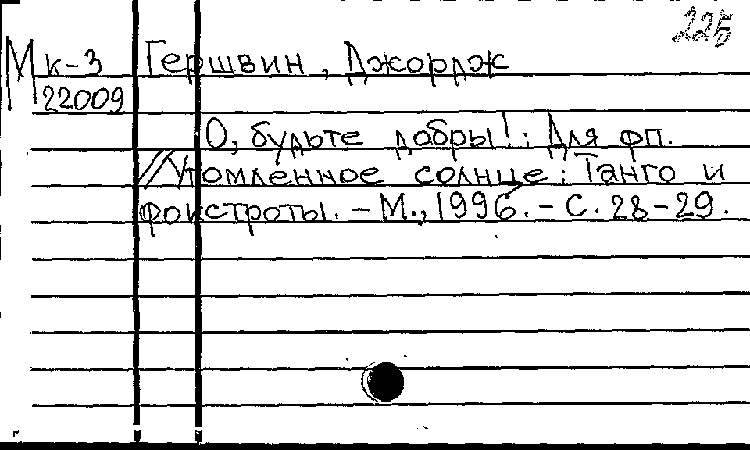 225
Мк-3 Гершвин, Джордж
22009
О, будьте добры!: Для фп.
//Утомленное солнце: Танго и
фокстроты. - М., 1996. - С. 28-29.